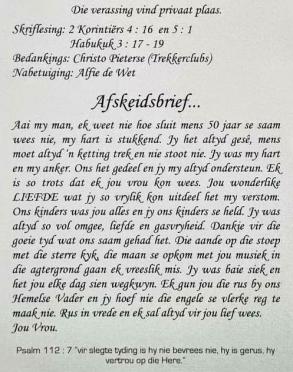 Die verassing vind privaat plaas.
Skriflesing: 2 Korintiërs 4 : 16 en 5 : 1
Habukuk 3 : 17 - 19
Bedankings: Christo Pieterse (Trekkerclubs)
Nabetuiging: Alfie de Wet
Afskeidsbrief...
Aai my man, ek weet nie hoe sluit mens 50 jaar se saam
wees nie, my hart is stukkend. Jy het altyd gesê, mens
moet altyd 'n ketting trek en nie stoot nie. Jy was my hart
en my anker. Ons het gedeel en jy my altyd ondersteun. Ek
is so trots dat ek jou vrou kon wees. Jou wonderlike
LIEFDE wat jy so vrylik kon uitdeel het my verstom.
Ons kinders was jou alles en jy ons kinders se held. Jy was
altyd so vol omgee, liefde en gasvryheid. Dankie vir die
goeie tyd wat ons saam gehad het. Die aande op die stoep
met die sterre kyk, die maan se opkom met jou musiek in
die agtergrond gaan ek vreeslik mis. Jy was baie siek en
het jou elke dag sien wegkwyn. Ek gun jou die rus by ons
Hemelse Vader en jy hoef nie die engele se vlerke reg te
maak nie. Rus in vrede en ek sal altyd vir jou lief wees.
Jou Vrou.
Psalm 112 : 7 "vir slegte tyding is hy nie bevrees nie, hy is gerus, hy
vertrou op die Here."